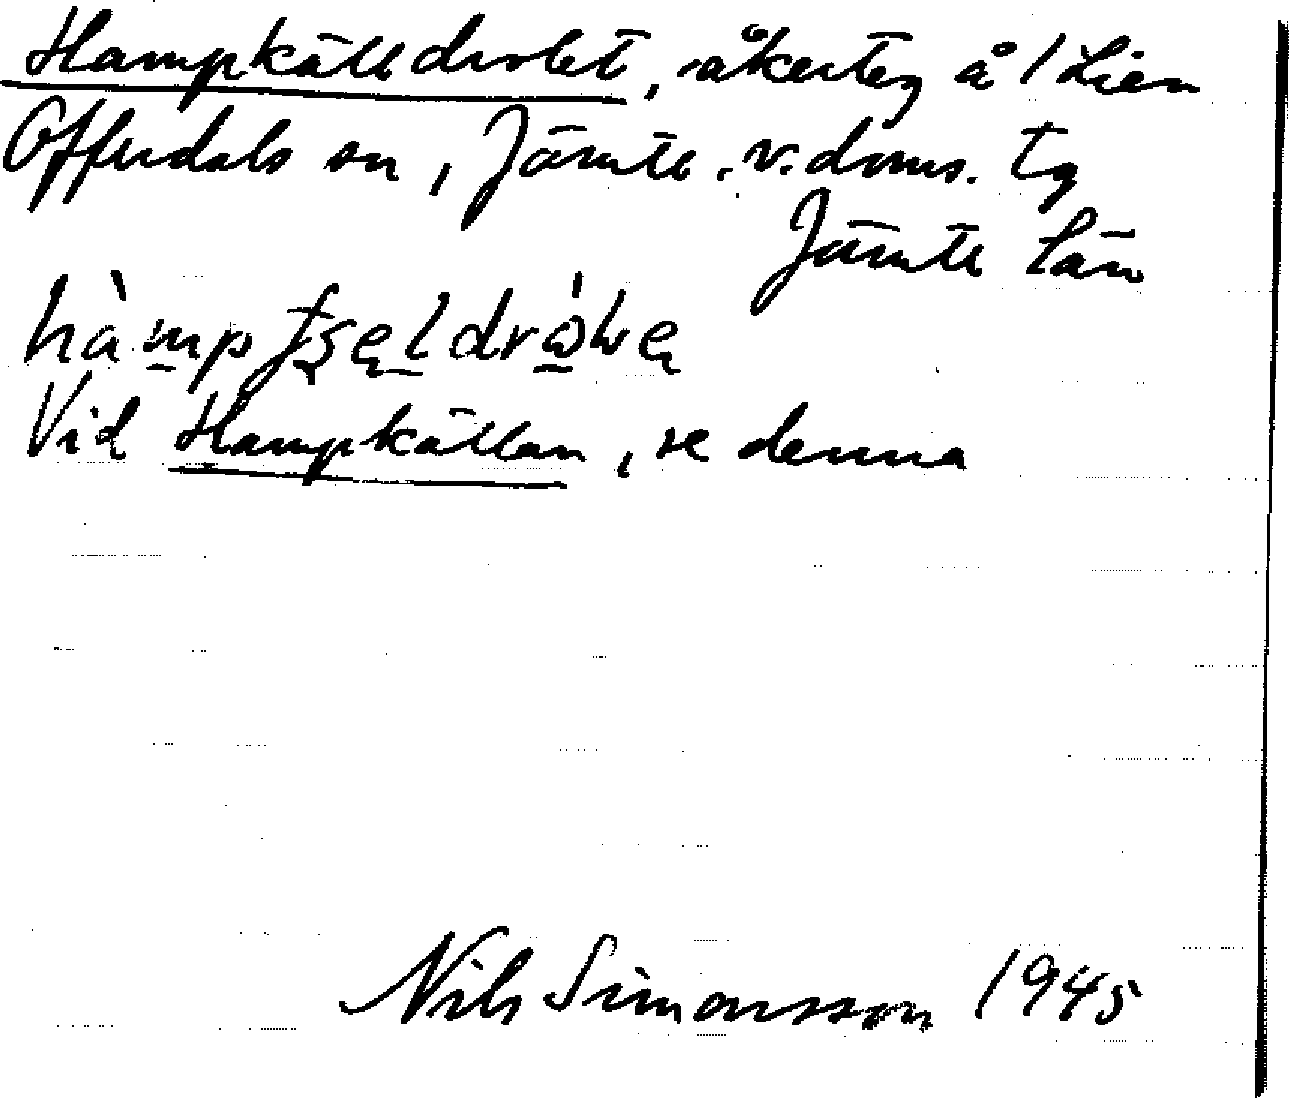 Hampkälldrolet, åkerteg å 1 Lien
Offerdals sn, Jämtl. v. doms. tg
Jämtl län
Vid Hampkällan, se denna
Nils Simonsson 1945